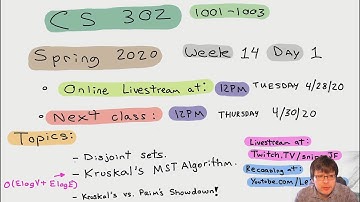 CS 302 1001-1003
Spring 2020 Week 14 Day 1
• Online Livestream at: 12PM TUESDAY 4/28/20
• Next class: 12PM THURSDAY 4/30/20
Topics:
- Disjoint sets.
- Kruskal's MST Algorithm.
O(ElogV + ElogE)
- Kruskal's vs. Prim's Showdown!
Livestream at:
Twitch.TV/
Recording at:
Youtube.com/